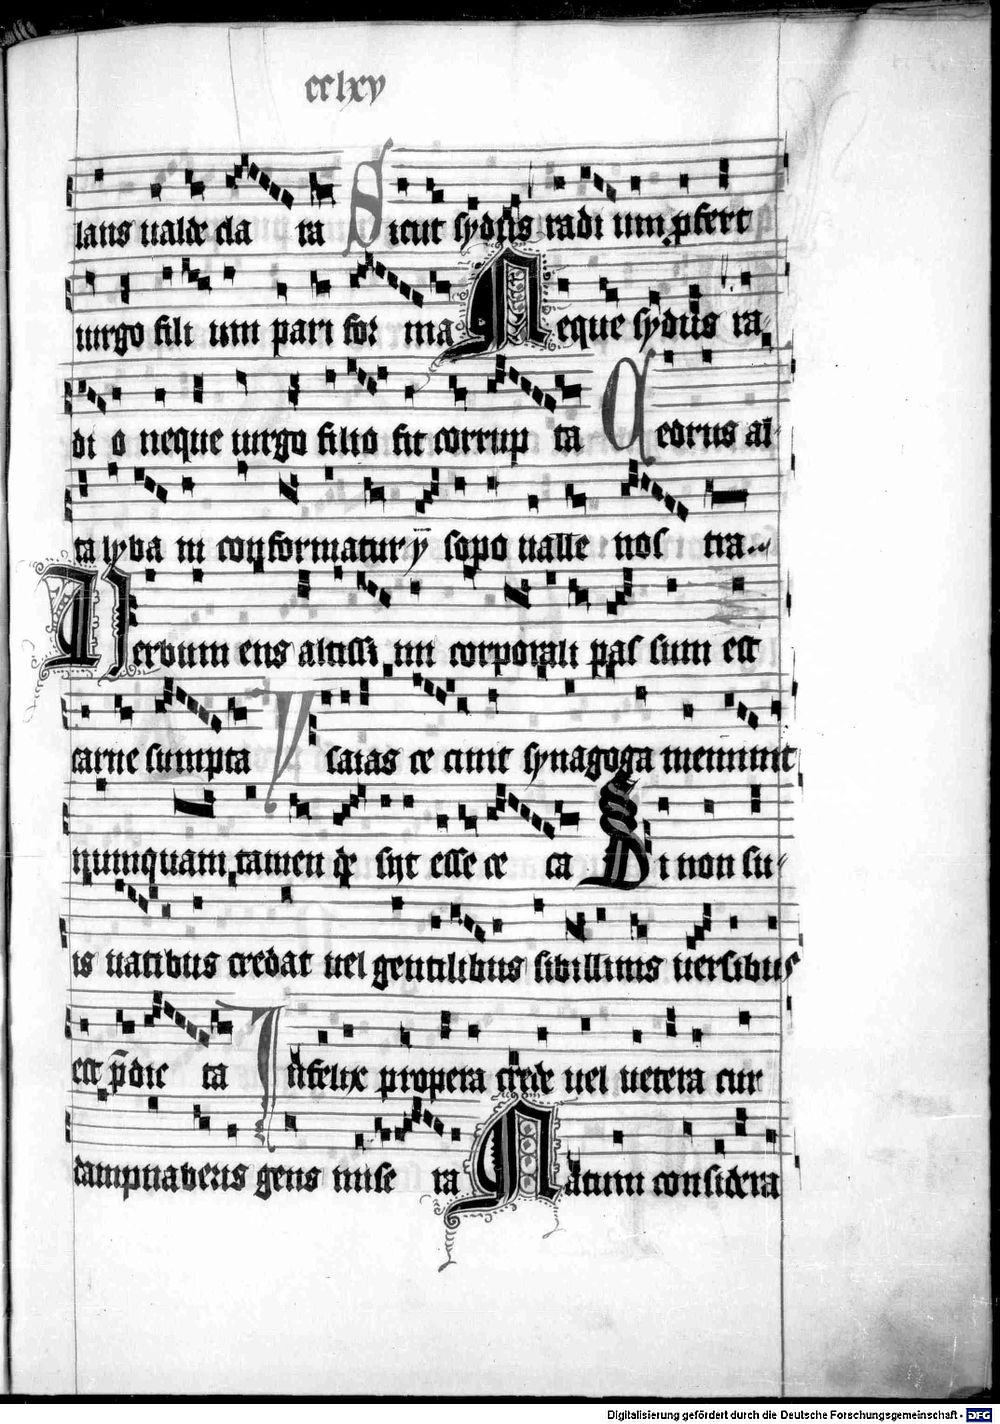 cclxv
lans ualde cla ra Sicut sydus radi um ꝓfert
uirgo fili um pari for ma Neque sydus ra
di o neque uirgo filio fit corrup ta Cedrus al
ta lyba ni conformatur ysopo ualle nos tra
Uerbum ens altissi mi corporali pas sum est
carne sumpta Ysaias ce cinit synagoga meminit
numquam tamen de syt esse ce ca Si non su
is uatibus credat uel gentilibus sibillinis uersibus
ect p̄dic ta Infelix propera crede uel uetera cur
dampnaberis gens mise ra Natum considera
Digitalisierung gefördert durch die Deutsche Forschungsgemeinschaft - DFG